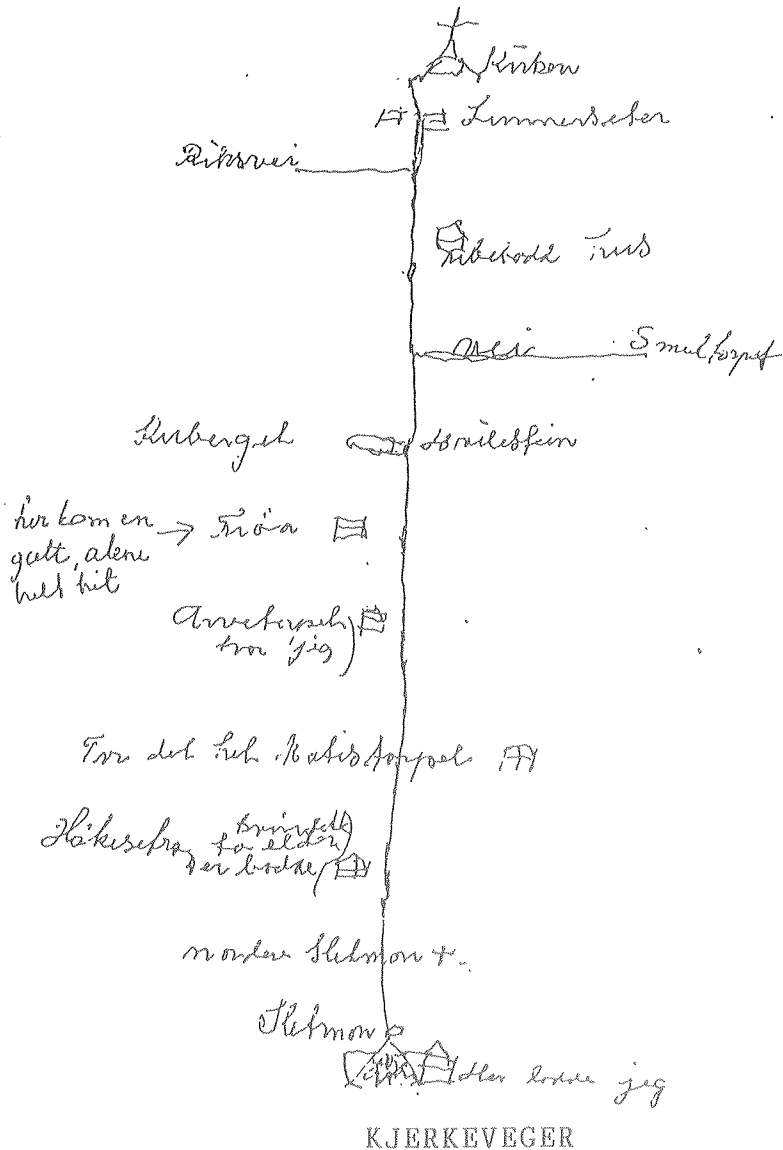 Kirken
Limmerseter
Riksvei
ubebodd Hus
vei Smultorpet
Kuberget
Hvilestein
Tröa
her kom en
gutt, alene
helt hit
Arvetorpet
tror jeg
Tror det het Matistorpet
Håkesetra
der bodde
nordre Sletmon
Sletmon
Her bodde jeg
KJERKEVEGER